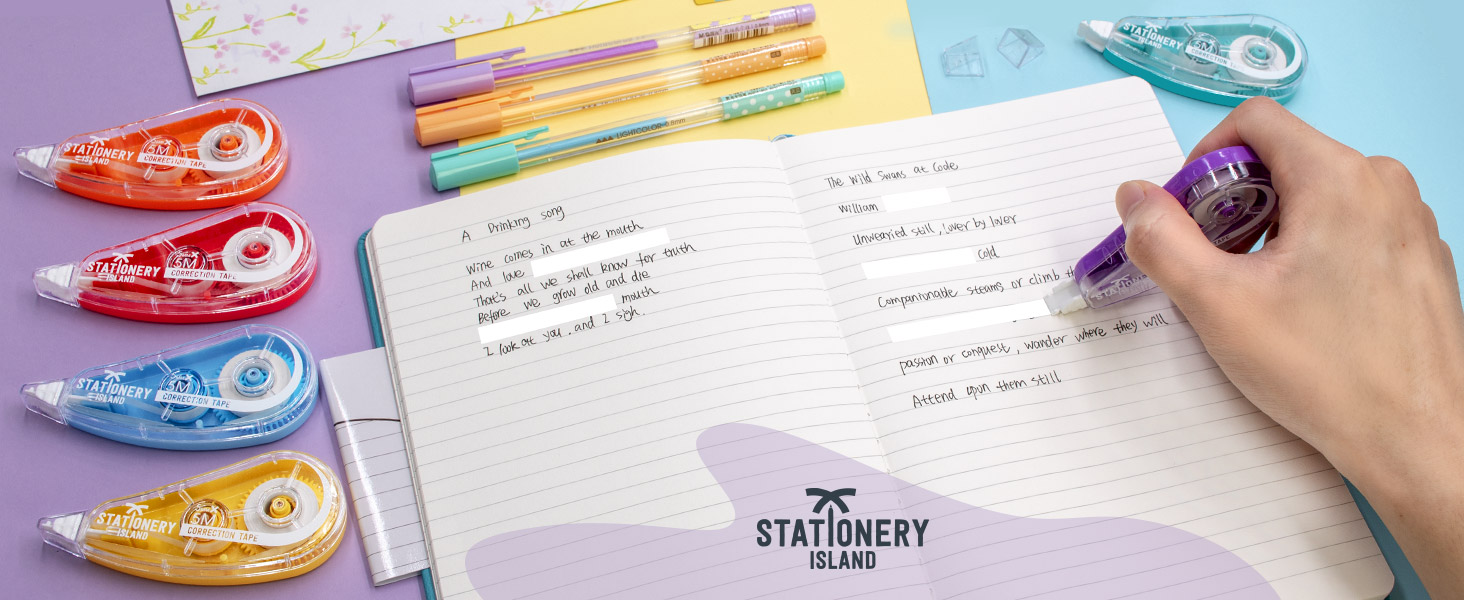 STATIONERY
ISLAND
5M
CORRECTION TAPE
STATIONERY
ISLAND
5M
CORRECTION TAPE
STATIONERY
ISLAND
5M
CORRECTION TAPE
STATIONERY
ISLAND
5M
CORRECTION TAPE
LIGHTCOLOR 0.8mm
STATIONERY
ISLAND
5M
CORRECTION TA
A Drinking song
Wine comes in at the mouth
And love
That's all we shall know for truth
Before we grow old and die
mouth
I look at you, and I sigh.
The Wild Swans at Code
William
Unwearied still, lover by lover
cold
Companionable steams or climb th
passion or conquest, wander where they will
Attend upon them still
STATIONERY
TAPE
STATIONERY
ISLAND